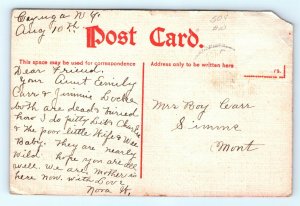 Cayuga N.Y.
Aug 10th
Post Card.
This space may be used for correspondence
Address only to be written here
19
Dear Friend.
Your Aunt Emily
Carr & Jimmie Locke
both are dead & buried
how I do pitty Lott Charlie
& the poor little Wife & wee
Baby. They are nearly
Wild. hope you are all
well. we are, Mother is
here now. with Love
Nora W.
Mrs Roy Carr
Simms
Mont